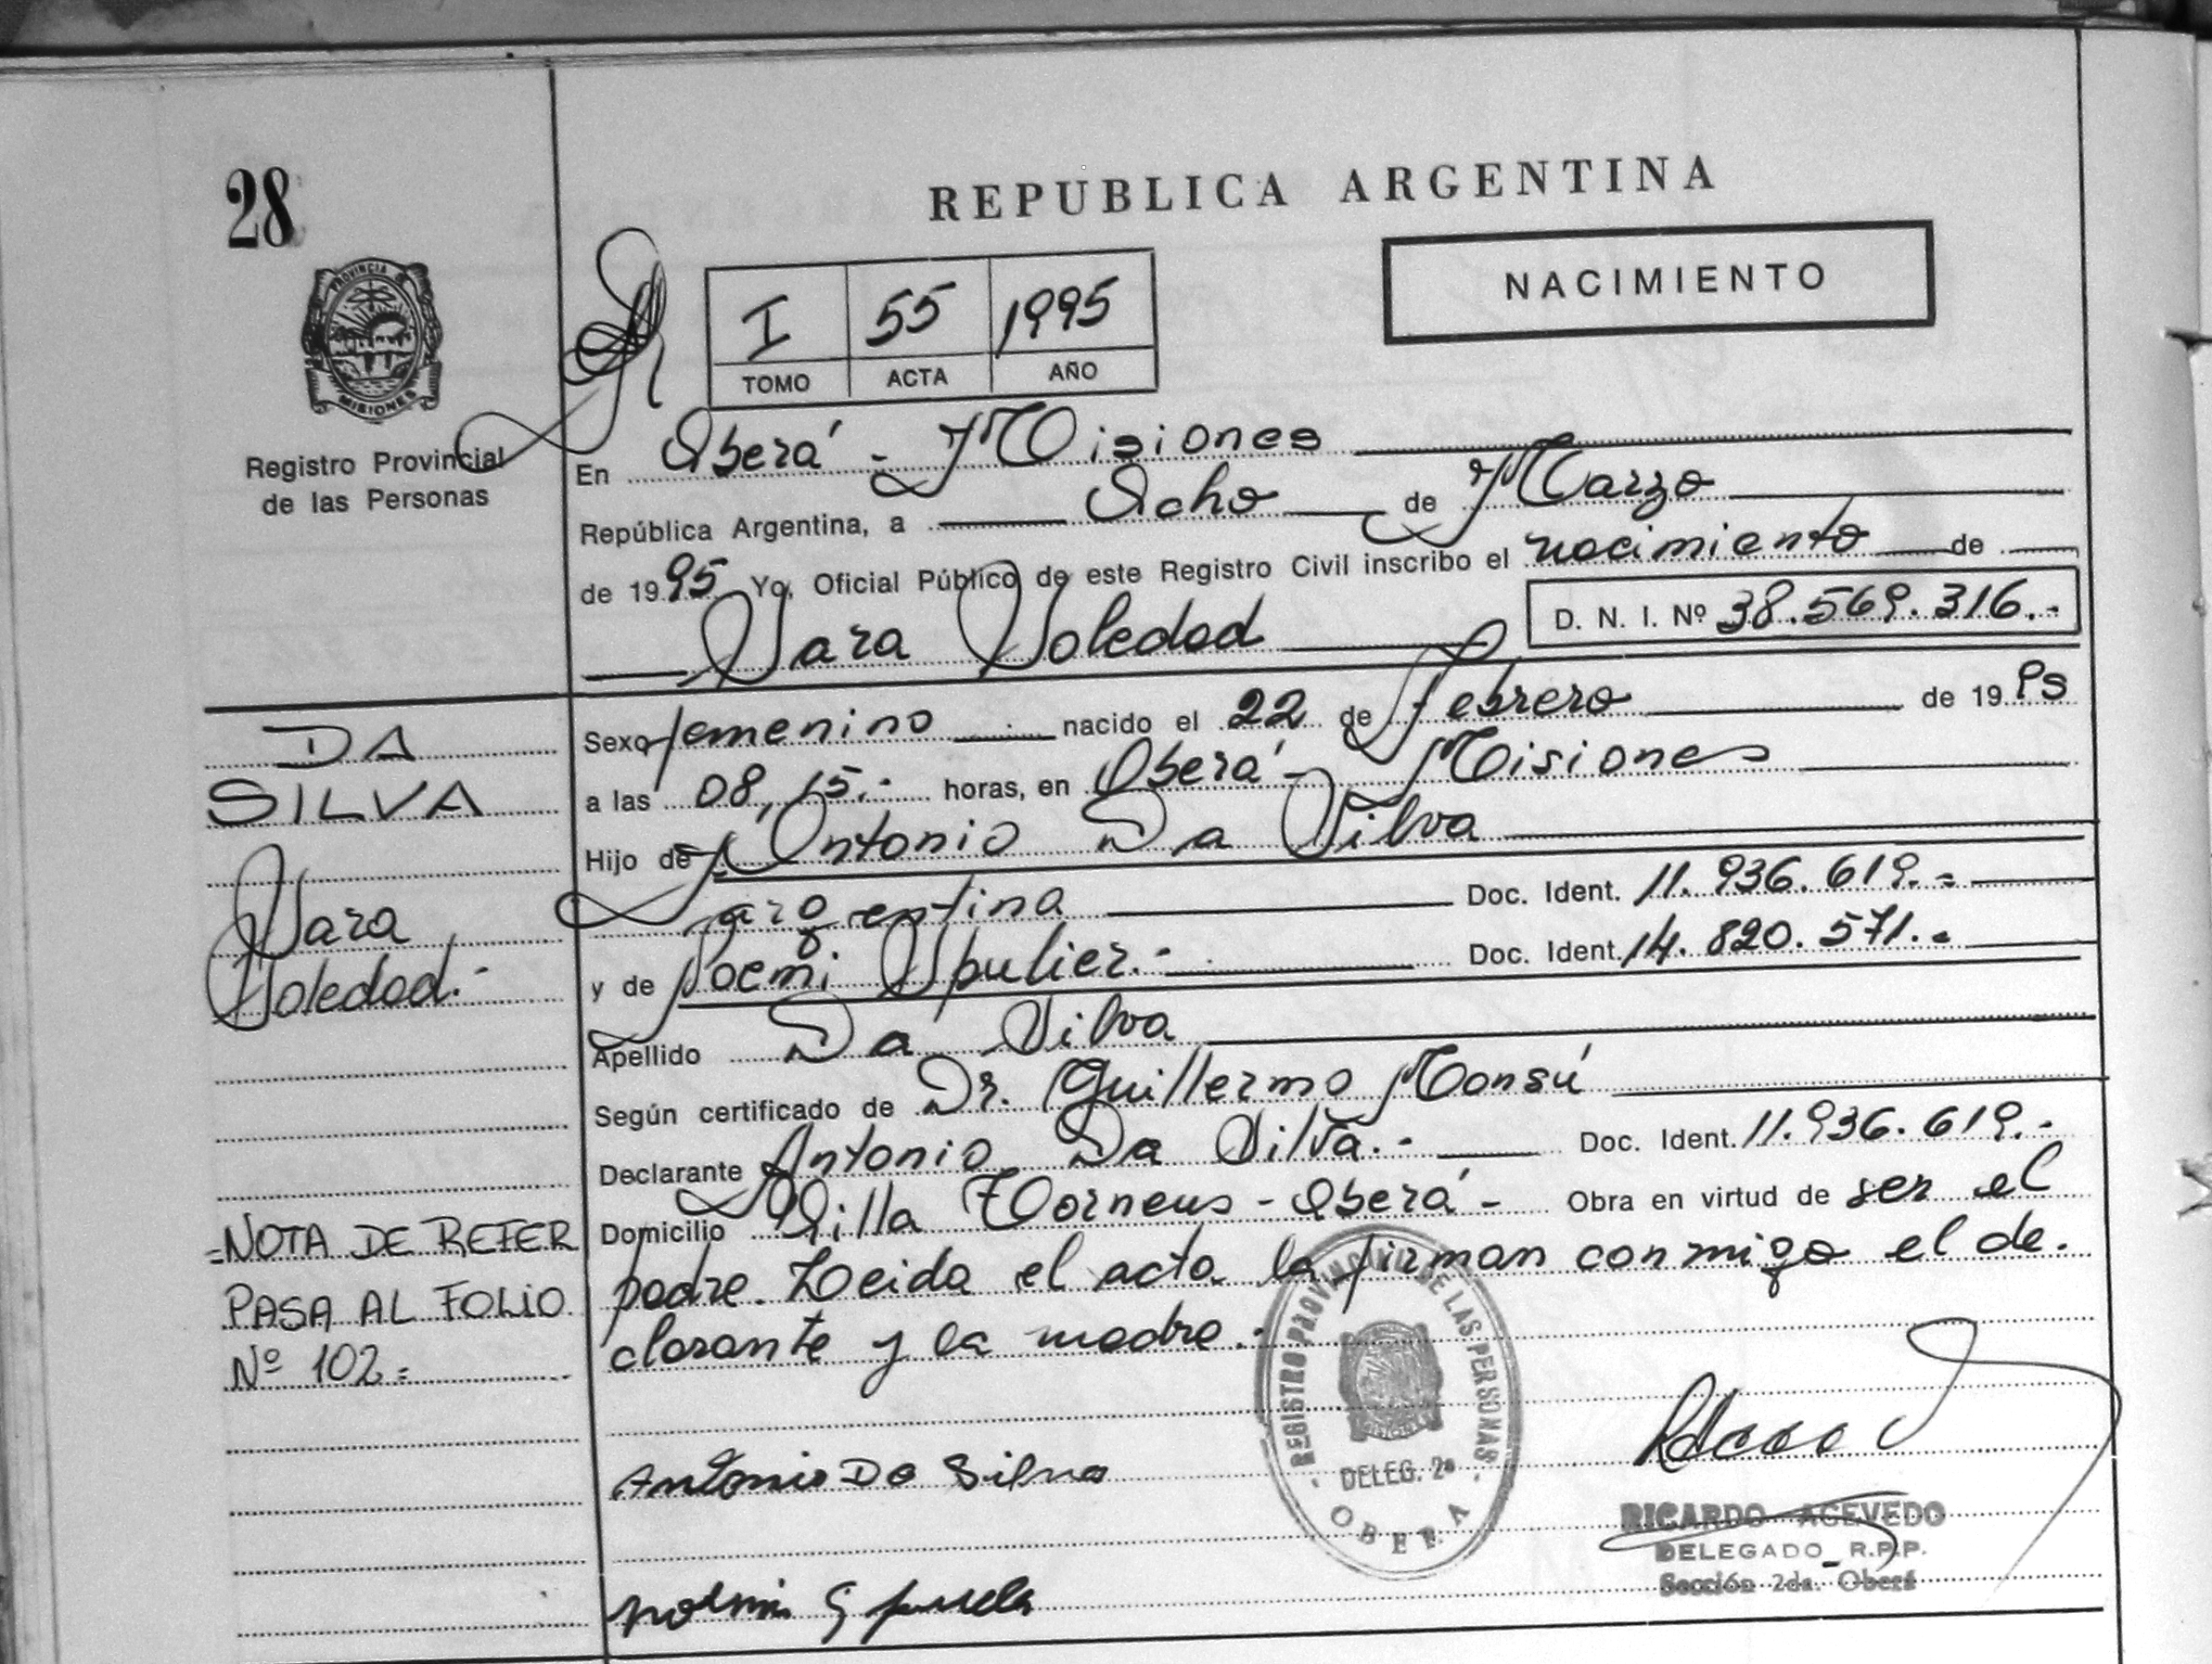 28
REPUBLICA ARGENTINA
NACIMIENTO
PROVINCIA DE
MISIONES
I 55 1995
TOMO ACTA AÑO
Registro Provincial
de las Personas
En Oberá - Misiones
República Argentina, a Ocho de Marzo
de 1995 Yo, Oficial Público de este Registro Civil inscribo el nacimiento de
Sara Soledad D. N. I. Nº 38.569.316.-
DA
SILVA
Sara
Soledad.-
Sexo femenino nacido el 22 de Febrero de 1995
a las 08,15.- horas, en Oberá - Misiones
Hijo de Antonio Da Silva
argentina Doc. Ident. 11.936.619.-
y de Noemi Spulier.- Doc. Ident. 14.820.571.-
Apellido Da Silva
Según certificado de Dr. Guillermo Monsú
Declarante Antonio Da Silva.- Doc. Ident. 11.936.619.-
Domicilio Villa Torneus - Oberá - Obra en virtud de ser el
padre. Leida el acta la firman conmigo el de-
clarante y la madre.-
=NOTA DE REFER
PASA AL FOLIO
Nº 102=
REGISTRO PROVINCIAL DE LAS PERSONAS
DELEG. 2ª
OBERA
Antonio Da Silva
RICARDO ACEVEDO
DELEGADO R.P.P.
Sección 2da. Oberá